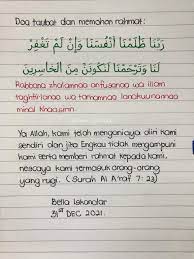 Doa taubat dan memohon rahmat:
رَبَّنَا ظَلَمْنَا أَنْفُسَنَا وَإِنْ لَمْ تَغْفِرْ
لَنَا وَتَرْحَمْنَا لَنَكُونَنَّ مِنَ الْخَاسِرِينَ
Rabbana zhalamnaa anfusanaa wa illam
taghfirlanaa wa tarhamnaa lanakuunannaa
minal khaasiriin
Ya Allah, kami telah menganiaya diri kami
sendiri dan jika Engkau tidak mengampuni
kami serta memberi rahmat kepada kami,
nescaya kami termasuk orang-orang
yang rugi. (Surah Al A'raf 7: 23)
Bella Iskandar
31st DEC 2021.